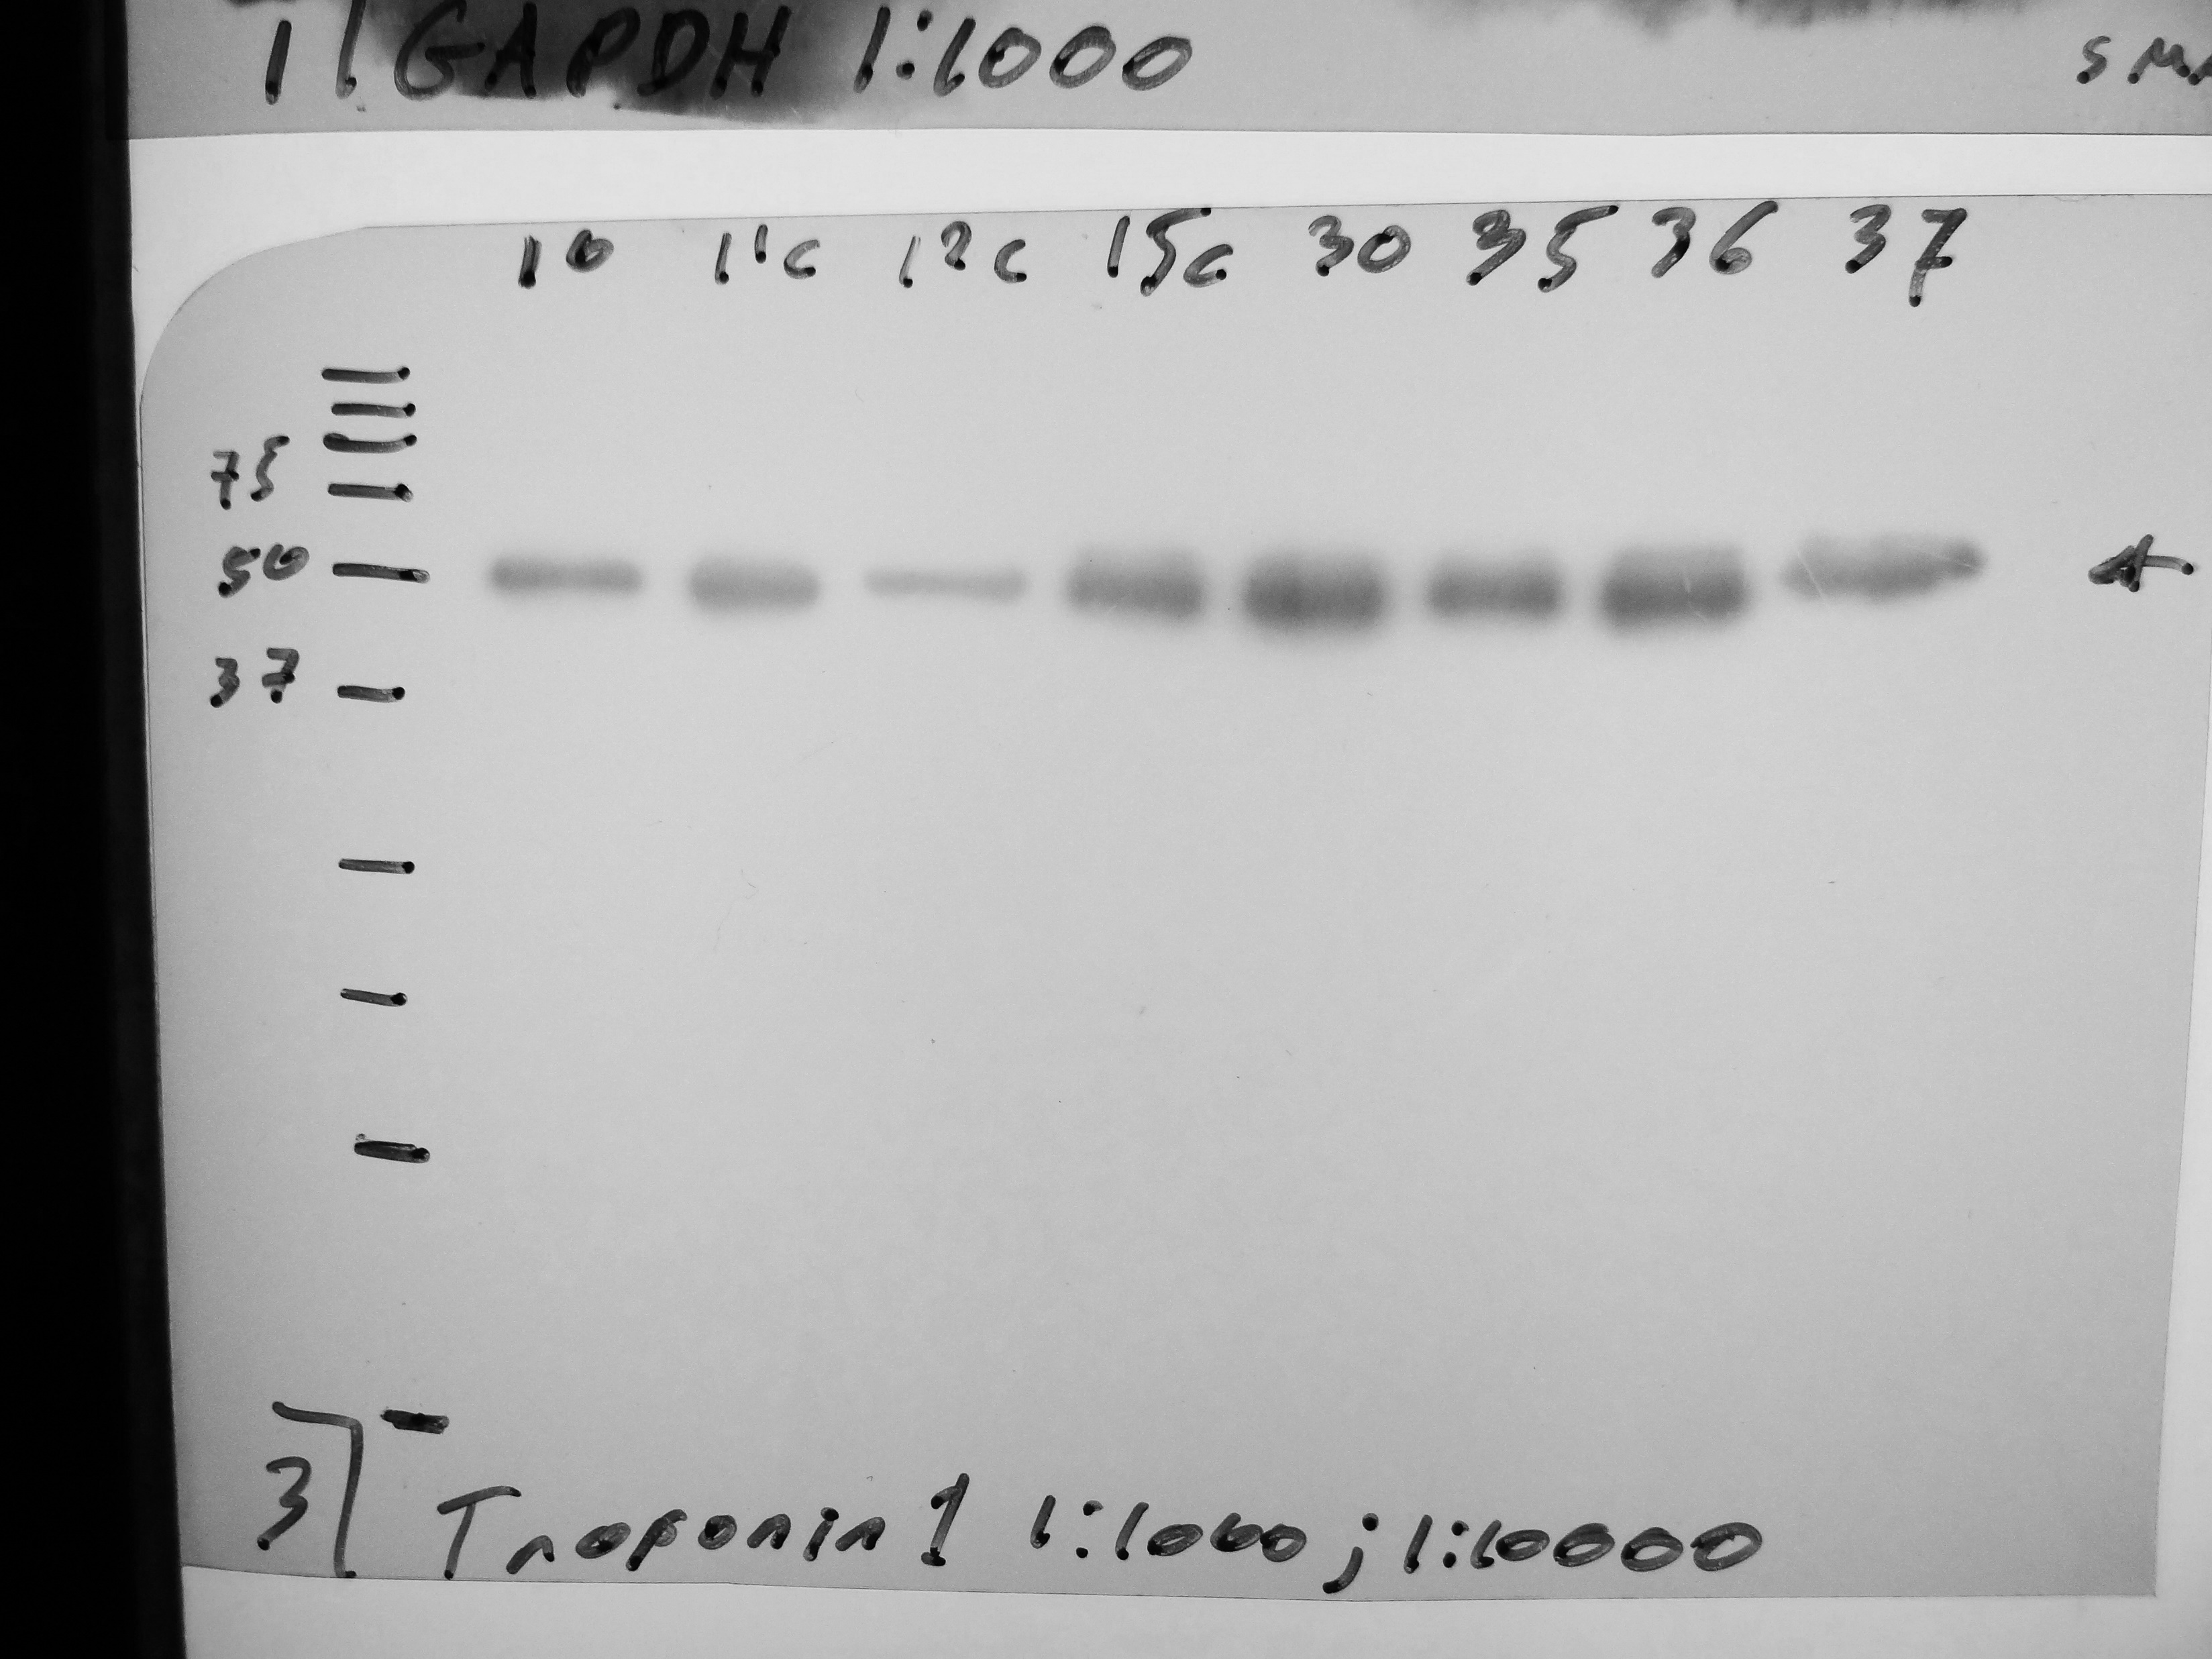 1 GAPDH 1:1000
10 11c 12c 15c 30 35 36 37
75
50
37
3 Troponin 1 1:1000; 1:10000